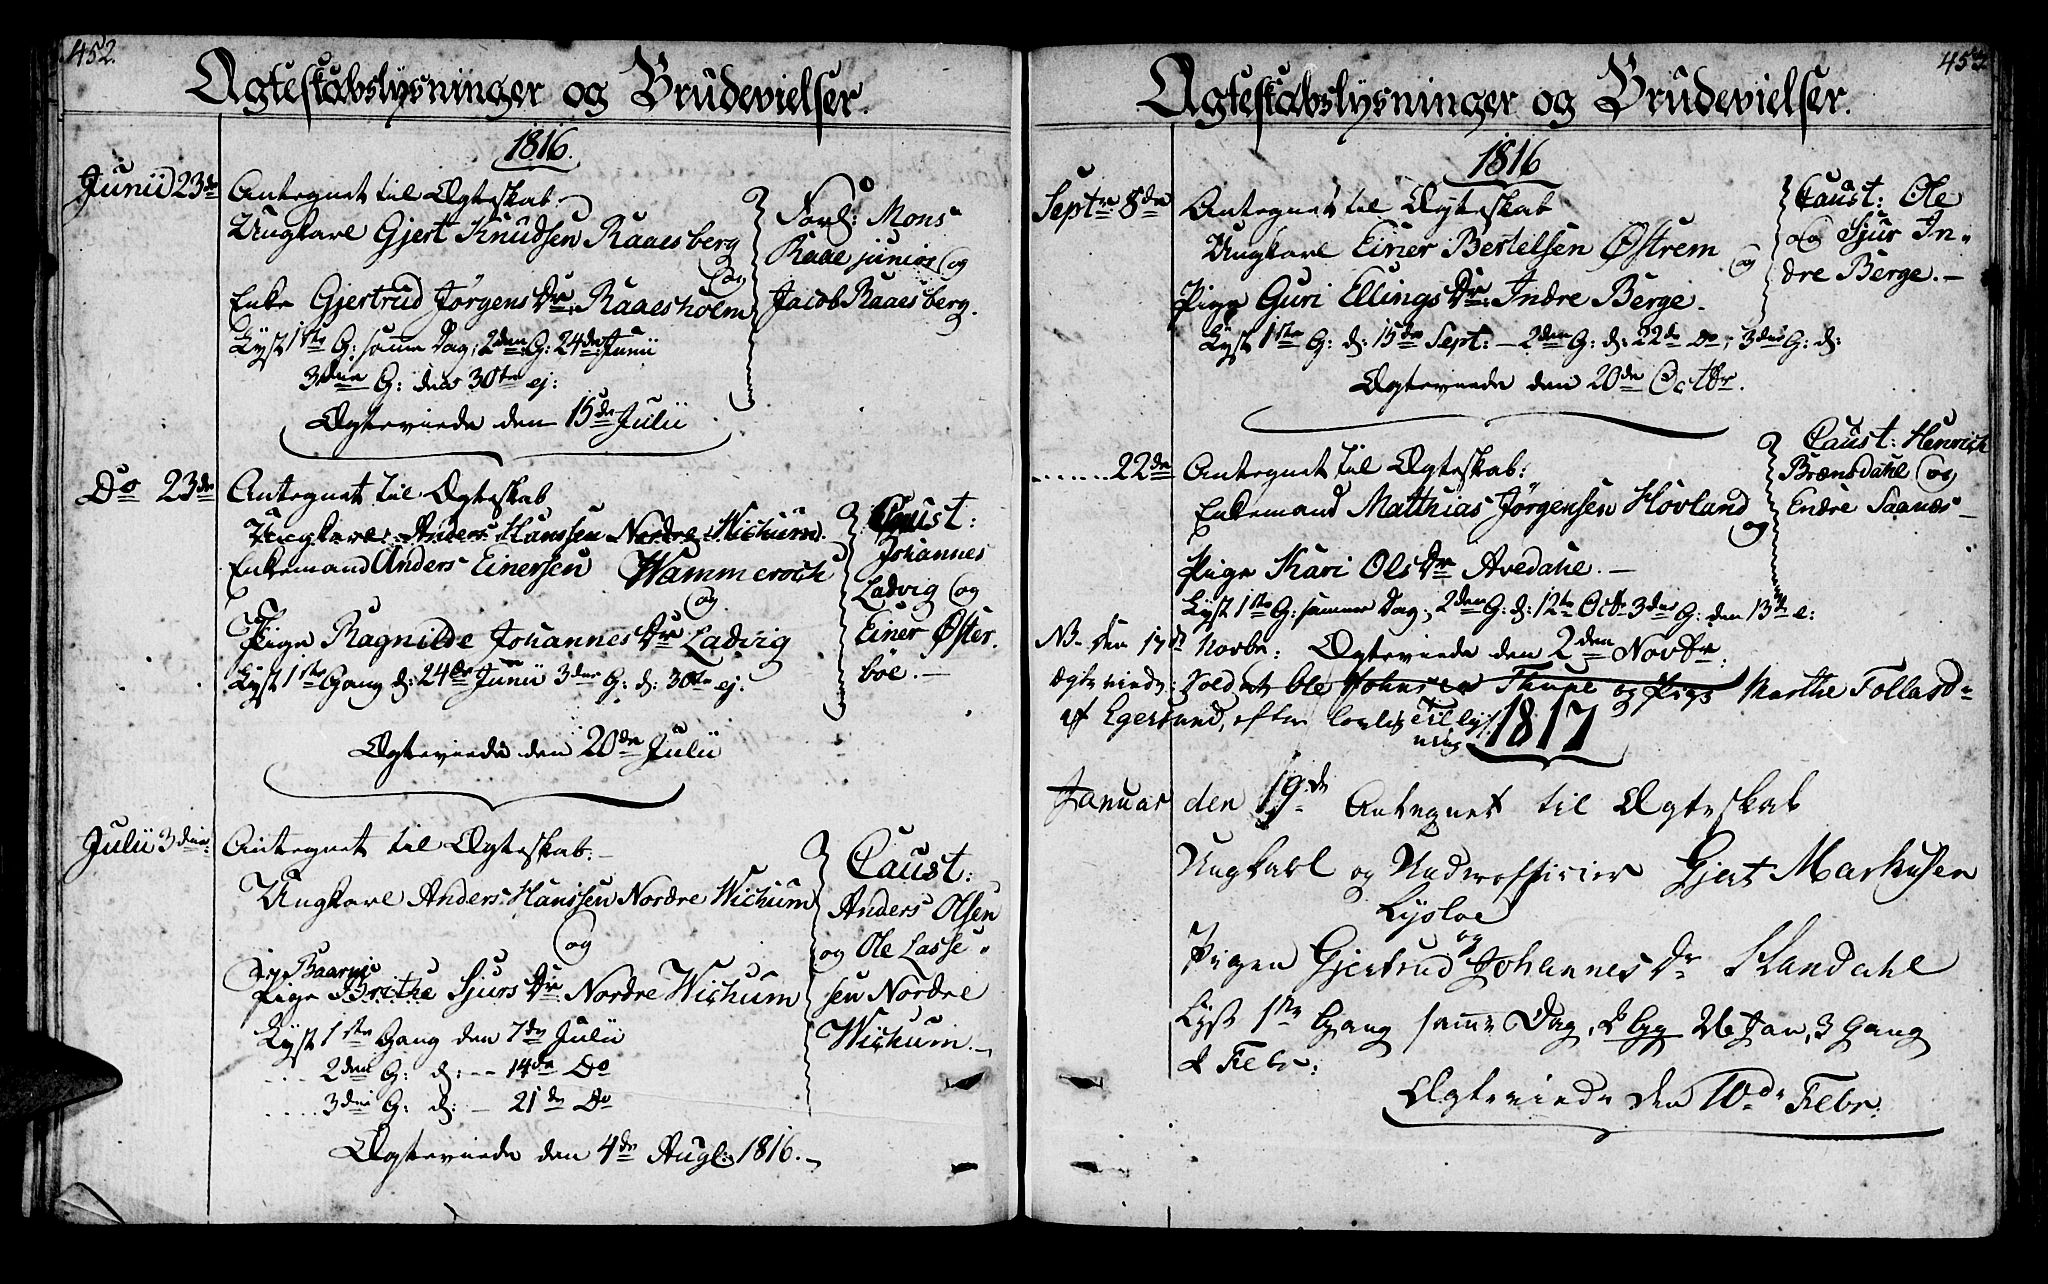 452.
Ægteskabslysninger og Brudevielser.
1816.
Junii 23de Antegnet til Ægteskab
Ungkarl Gjert Knudsen Raaesberg
og
Enke Gjertrud Jørgens Dr. Raaesholm
Lyst 1ste G: samme Dag, 2den G: 24de Junii
3die G: den 30te ej:
Ægteviede den 15de Julii
Forl: Mons
Raae junior og
Jacob Raaesberg.
Do 23de Antegnet til Ægteskab
Ungkarl Anders Hanssen Nordre Wichum.
Enkemand Anders Einersen Wammeroch
og
Pige Ragnilde Johannes Dr Ladvig
Lyst 1ste Gang d: 24de Junii 3die G: d: 30te ej:
Ægteviede den 20de Julii
Caust:
Johannes
Ladvig og
Einer Øster
böe.
Julii 3die Antegnet til Ægteskab.
Ungkarl Anders Hanssen Nordre Wichum
og
Baarnie
Pige Brithe Sjurs Dr Nordre Wichum
Lyst 1ste Gang den 7de Julii
2den G: d: 14de Do
3die G: d: 21de Do
Ægteviede den 4de Aug: 1816.
Caust:
Anders Olsen
og Ole Lasse
sen Nordre
Wichum.
453
Ægteskabslysninger og Brudevielser.
1816
Septr 8de Antegnet til Ægteskab
Ungkarl Einer Bertelsen Østrem
og
Pige Guri Ellings Dr. Indre Berge.
Lyst 1ste G: d: 15de Sept: 2den G: d: 22de Do, 3die G: d:
Ægteviede den 20de Octbr.
Caust: Ole
og Sjur In
dre Berge.
22de Antegnet til Ægteskab:
Enkemand Matthias Jørgensen Hovland
og
Pige Kari Ols Dr Avedahl.
Lyst 1ste G: samme Dag, 2den G: d: 12te Octb 3die G: den 13de e:
Ægteviede den 2den Novbr.
Caust: Henrich
Brænsdahl og
Endre Saanæs
NB den 17de Novbr:
Ægteviede: Soldat Ole Johnsen Thune og Pige Marthe Tollas D
af Egersund, efter lovlig Tillys
ning
1817
Januar den 19de Antegnet til Ægteskab
Ungkarl og Underofficier Gjert Markusen
Lysloe
og
Pigen Gjertrud Johannes Dr Skandahl
Lyst 1ste Gang samme Dag, 2 Gg 26 Jan, 3 Gang
2 Febr:
Ægteviede den 10de Febr.